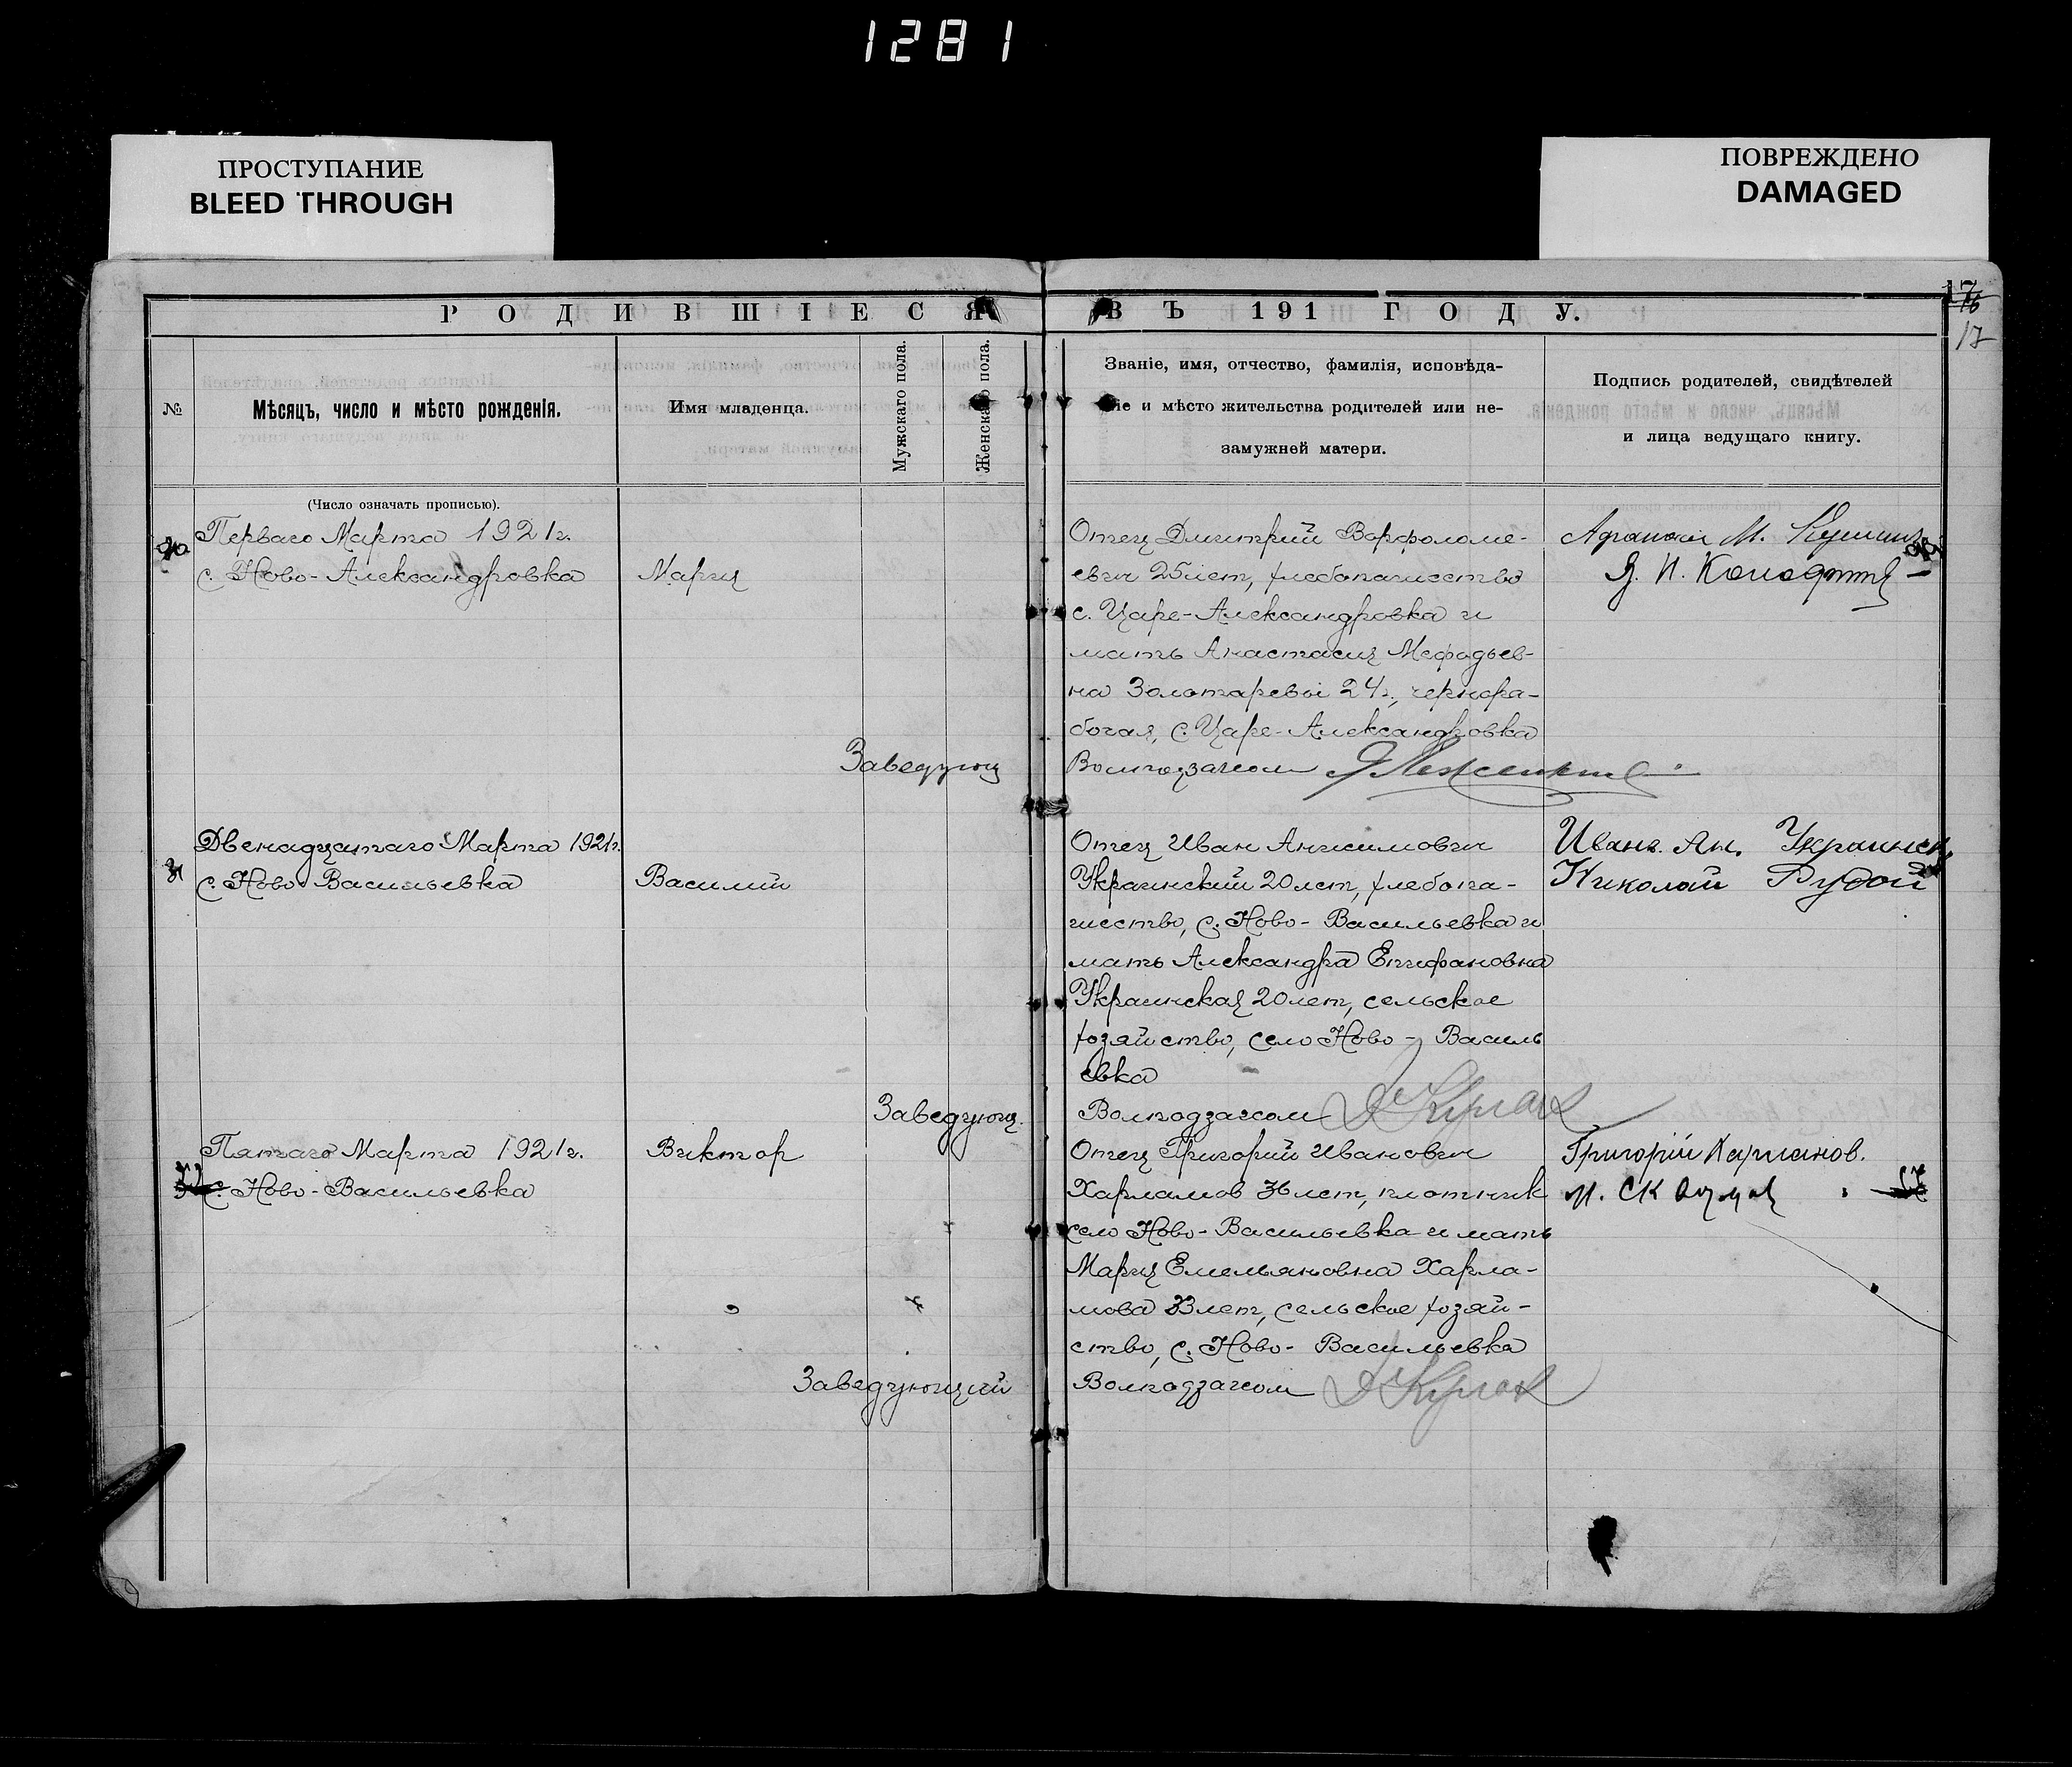 1281
ПРОСТУПАНИЕ
BLEED THROUGH
ПОВРЕЖДЕНО
DAMAGED
РОДИВШІЕСЯ ВЪ 191 ГОДУ.
17
№
Мѣсяцъ, число и мѣсто рожденія.
Имя младенца.
Мужскаго пола.
Женскаго пола.
Званіе, имя, отчество, фамилія, исповѣда-
ніе и мѣсто жительства родителей или не-
замужней матери.
Подпись родителей, свидѣтелей
и лица ведущаго книгу.
(Число означать прописью).
Перваго Марта 1921г.
с. Ново-Александровка
Мария
Отец Дмитрий Варфоломе-
евич 25 лет, хлебопашество
с. Царе-Александровка и
мать Анастасия Мефодьев-
на Золотаревы 24г., чернора-
бочая, с. Царе-Александровка
Заведующ Волподзагсом
М.
Я. И.
31
Двенадцатаго Марта 1921г.
с. Ново-Васильевка
Василий
Отец Иван Анисимович
Украинский 20 лет, хлебопа-
шество, с. Ново-Васильевка и
мать Александра Епифановна
Украинская 20 лет, сельское
хозяйство, село Ново-Василь
евка
Заведующ. Волподзагсом
Иванъ Ан.
Николай Рудой
Пятаго Марта 1921г.
с. Ново-Васильевка
Виктор
Отец Григорий Иванович
Харламов 36 лет, плотник
село Ново-Васильевка и мать
Мария Емельяновна Харла-
мова 33 лет, сельское хозяй-
ство, с. Ново-Васильевка
Заведующий Волподзагсом
Григорій Харламов.